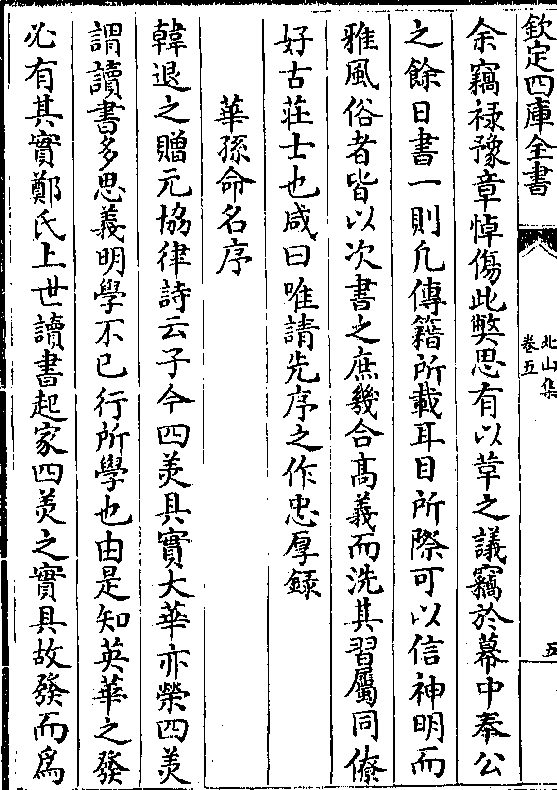 欽定四庫全書
北山集
卷五
五
余竊禄豫章悼傷此弊思有以草之議竊於幕中奉公
之餘日書一則凢傳籍所載耳目所際可以信神明而
雅風俗者皆以次書之庶幾合髙義而洗其習屬同僚
好古莊士也咸曰唯請先序之作忠厚録
華孫命名序
韓退之贈元協律詩云子今四美具實大華亦榮四美
謂讀書多思義明學不已行所學也由是知英華之發
必有其實鄭氏上世讀書起家四美之實具故發而為